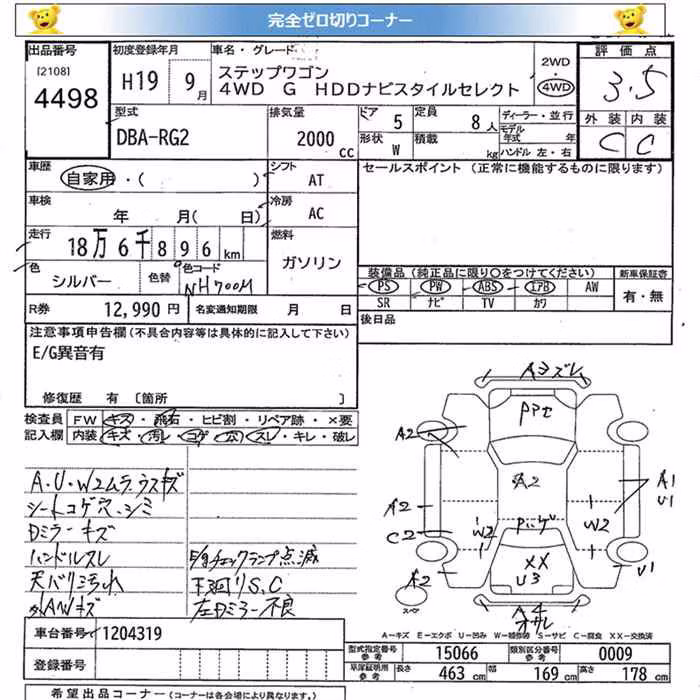 完全ゼロ切りコーナー
出品番号
[2108]
4498
初度登録年月
H19 9月
車名・グレード
ステップワゴン
4WD G HDDナビスタイルセレクト
2WD
・
4WD
評価点
3.5
外装 内装
C C
型式
DBA-RG2
排気量
2000 cc
ドア 5
定員 8人
形状 W
積載 kg
ディーラー・並行
モデル年式 年
ハンドル 左・右
車歴
自家用・( )
シフト
AT
車検
年 月( 日)
冷房
AC
走行
18万6千896km
燃料
ガソリン
色
シルバー
色替
色コード
NH700M
セールスポイント (正常に機能するものに限ります)
装備品 (純正品に限り○をつけてください)
PS PW ABS エアB AW
SR ナビ TV カワ
新車保証書
有・無
R券 12,990円
名変通知期限 月 日
後日品
注意事項申告欄 (不具合内容等は具体的に記入して下さい)
E/G異音有
修復歴 有 [箇所 ]
検査員記入欄
FW キズ・飛石・ヒビ割・リペア跡・×要
内装 キズ・汚レ・コゲ・穴・スレ・キレ・破レ
A.U.W2ムラ,ラスキズ
シートコゲ穴.シミ
Dミラーキズ
ハンドルスレ
天バリヨゴれ
外AWキズ
E/gチェックランプ点滅
下廻りS.C
左Dミラー不良
Aヨズレ
A2
A2
A2
A1
U1
A2
C2
W2
W2
XX
U3
A2
U1
スペア
A4
A-キズ E-エクボ U-凹み W-補修跡 S-サビ C-腐食 XX-交換済
車台番号 1204319
登録番号
型式指定番号 参考 15066
類別区分番号 参考 0009
車庫証明用 参考 長さ 463cm 幅 169cm 高さ 178cm
希望出品コーナー (コーナーは各会場により異なります。)